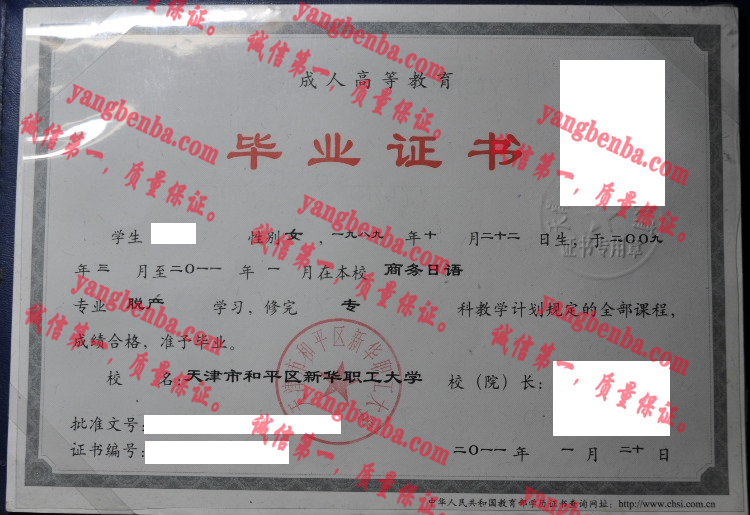 成人高等教育
毕业证书
学生 性别 女 ，一九八九 年 十 月 二十二 日生，于 二〇〇九
年 三 月至 二〇一一 年 一 月在本校 商务日语
专业 脱产 学习，修完 专 科教学计划规定的全部课程，
成绩合格，准予毕业。
校 名：天津市和平区新华职工大学 校（院）长：
批准文号：
证书编号： 二〇一一 年 一 月 二十 日
中华人民共和国教育部学历证书查询网址：http://www.chsi.com.cn
天津市和平区新华职工大学
yangbenba.com
诚信第一，质量保证。
yangbenba.com
诚信第一，质量保证。
yangbenba.com
诚信第一，质量保证。
yangbenba.com
诚信第一，质量保证。
yangbenba.com
诚信第一，质量保证。
yangbenba.com
诚信第一，质量保证。
yangbenba.com
诚信第一，质量保证。
yangbenba.com
诚信第一，质量保证。
yangbenba.com
诚信第一，质量保证。